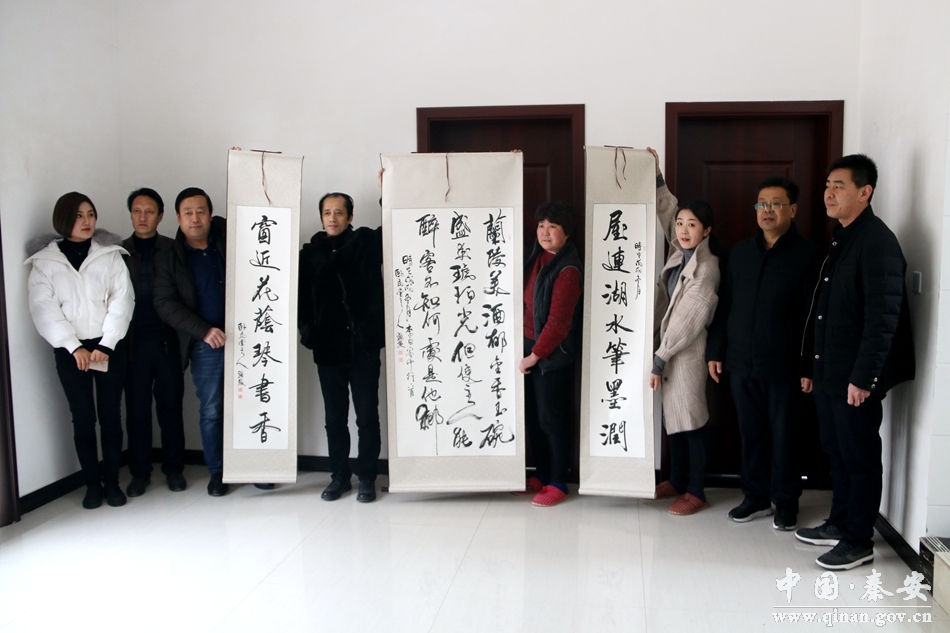 屋連湖水筆墨潤
蘭陵美酒郁金香玉碗
盛来琥珀光但使主人能
醉客不知何處是他鄉
窗近花蔭琴書香
中国·秦安
www.qinan.gov.cn